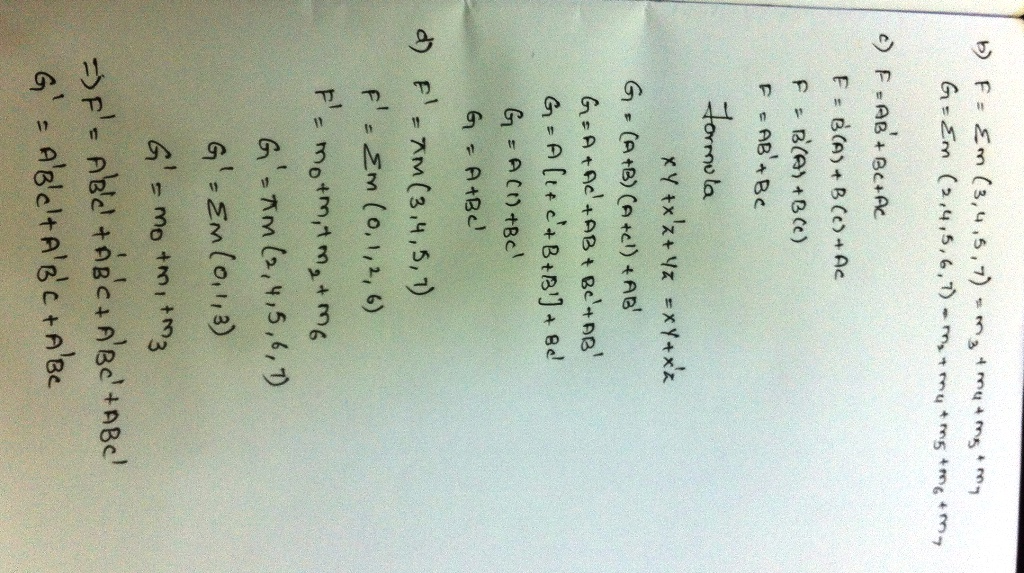 b) F = Σm (3,4,5,7) = m₃ + m₄ + m₅ + m₇
G = Σm (2,4,5,6,7) = m₂ + m₄ + m₅ + m₆ + m₇
c) F = AB' + BC + AC
F = B'(A) + B(C) + AC
F = B'(A) + B(C)
F = AB' + BC
Formula
xy + x'z + yz = xy + x'z
G = (A+B)(A+C') + AB'
G = A + AC' + AB + BC' + AB'
G = A[1 + C' + B + B'] + BC'
G = A(1) + BC'
G = A + BC'
d) F' = πM(3,4,5,7)
F' = Σm(0,1,2,6)
F' = m₀ + m₁ + m₂ + m₆
G' = πM(2,4,5,6,7)
G' = Σm(0,1,3)
G' = m₀ + m₁ + m₃
=> F' = A'B'C' + A'B'C + A'BC' + ABC'
G' = A'B'C' + A'B'C + A'BC